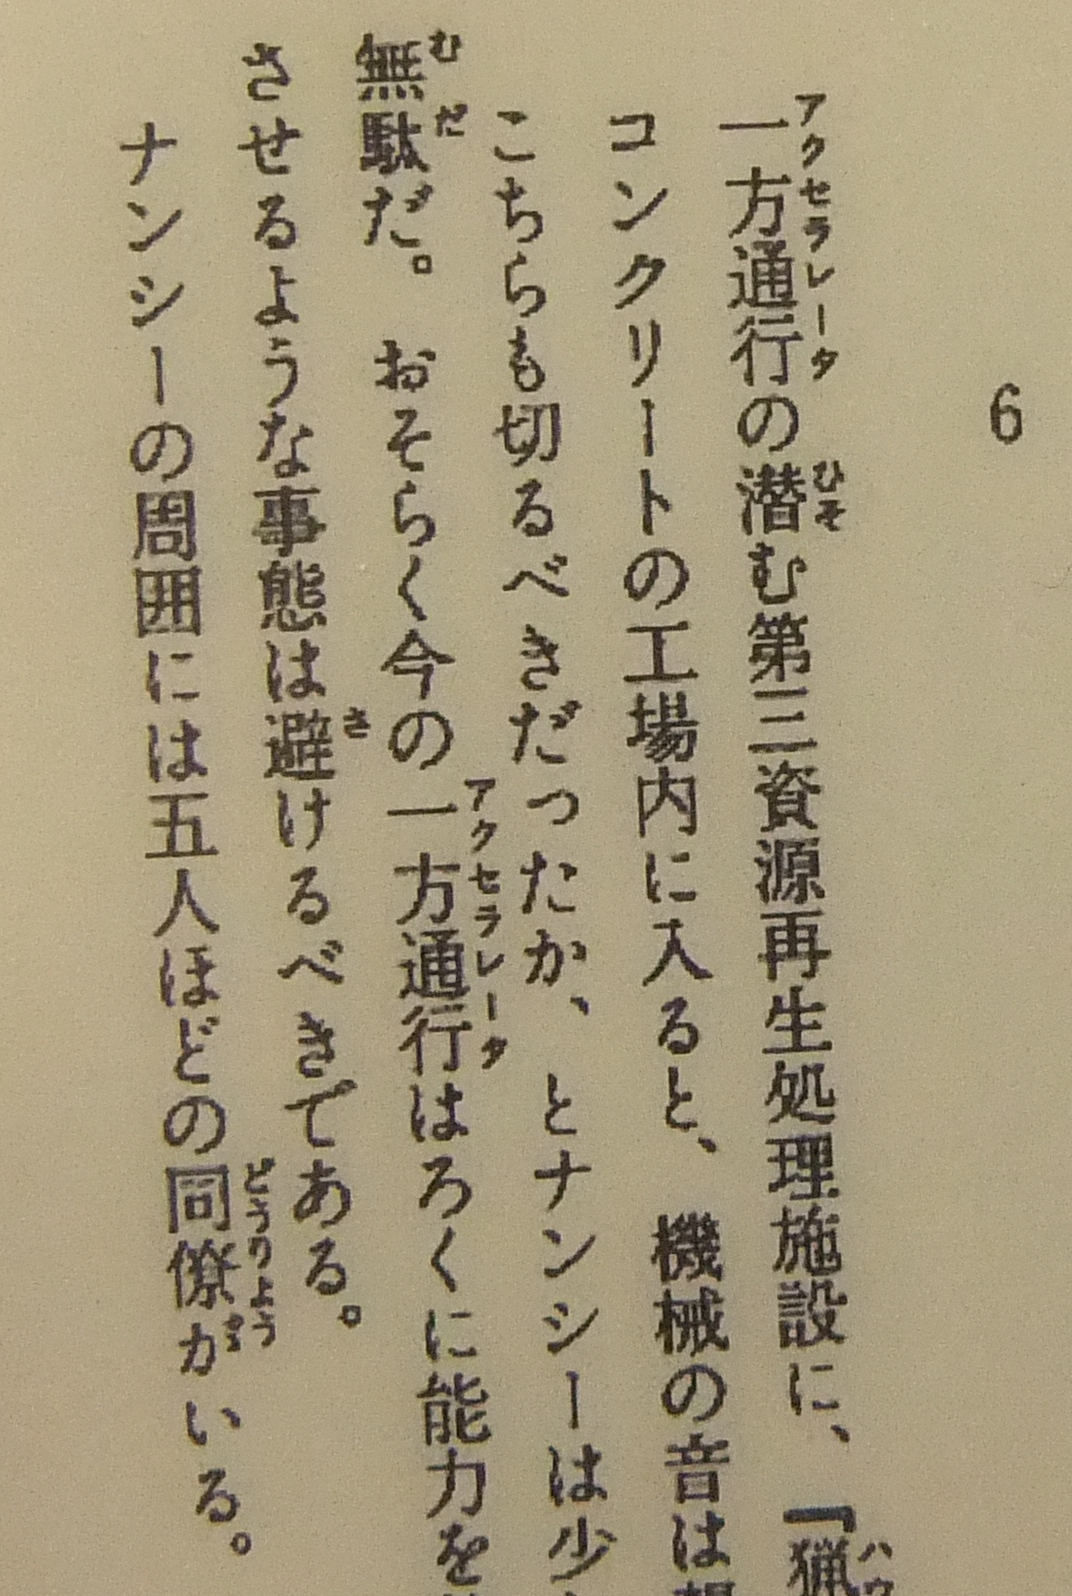 6
一方通行の潜む第三資源再生処理施設に、『猟
コンクリートの工場内に入ると、機械の音は
こちらも切るべきだったか、とナンシーは少
無駄だ。おそらく今の一方通行はろくに能力を
させるような事態は避けるべきである。
ナンシーの周囲には五人ほどの同僚がいる。